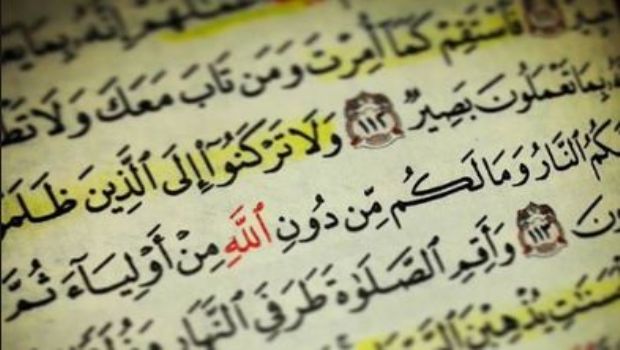 إِنَّهُۥ بِمَا
فَٱسْتَقِمْ كَمَآ أُمِرْتَ وَمَن تَابَ مَعَكَ وَلَا تَطْ
بِمَا تَعْمَلُونَ بَصِيرٌ ١١٢ وَلَا تَرْكَنُوٓا۟ إِلَى ٱلَّذِينَ ظَلَمُ
كُمُ ٱلنَّارُ وَمَا لَكُم مِّن دُونِ ٱللَّهِ مِنْ أَوْلِيَآءَ ثُمَّ
ونَ ١١٣ وَأَقِمِ ٱلصَّلَوٰةَ طَرَفَىِ ٱلنَّهَارِ وَزُلَ
يُذْهِبْنَ